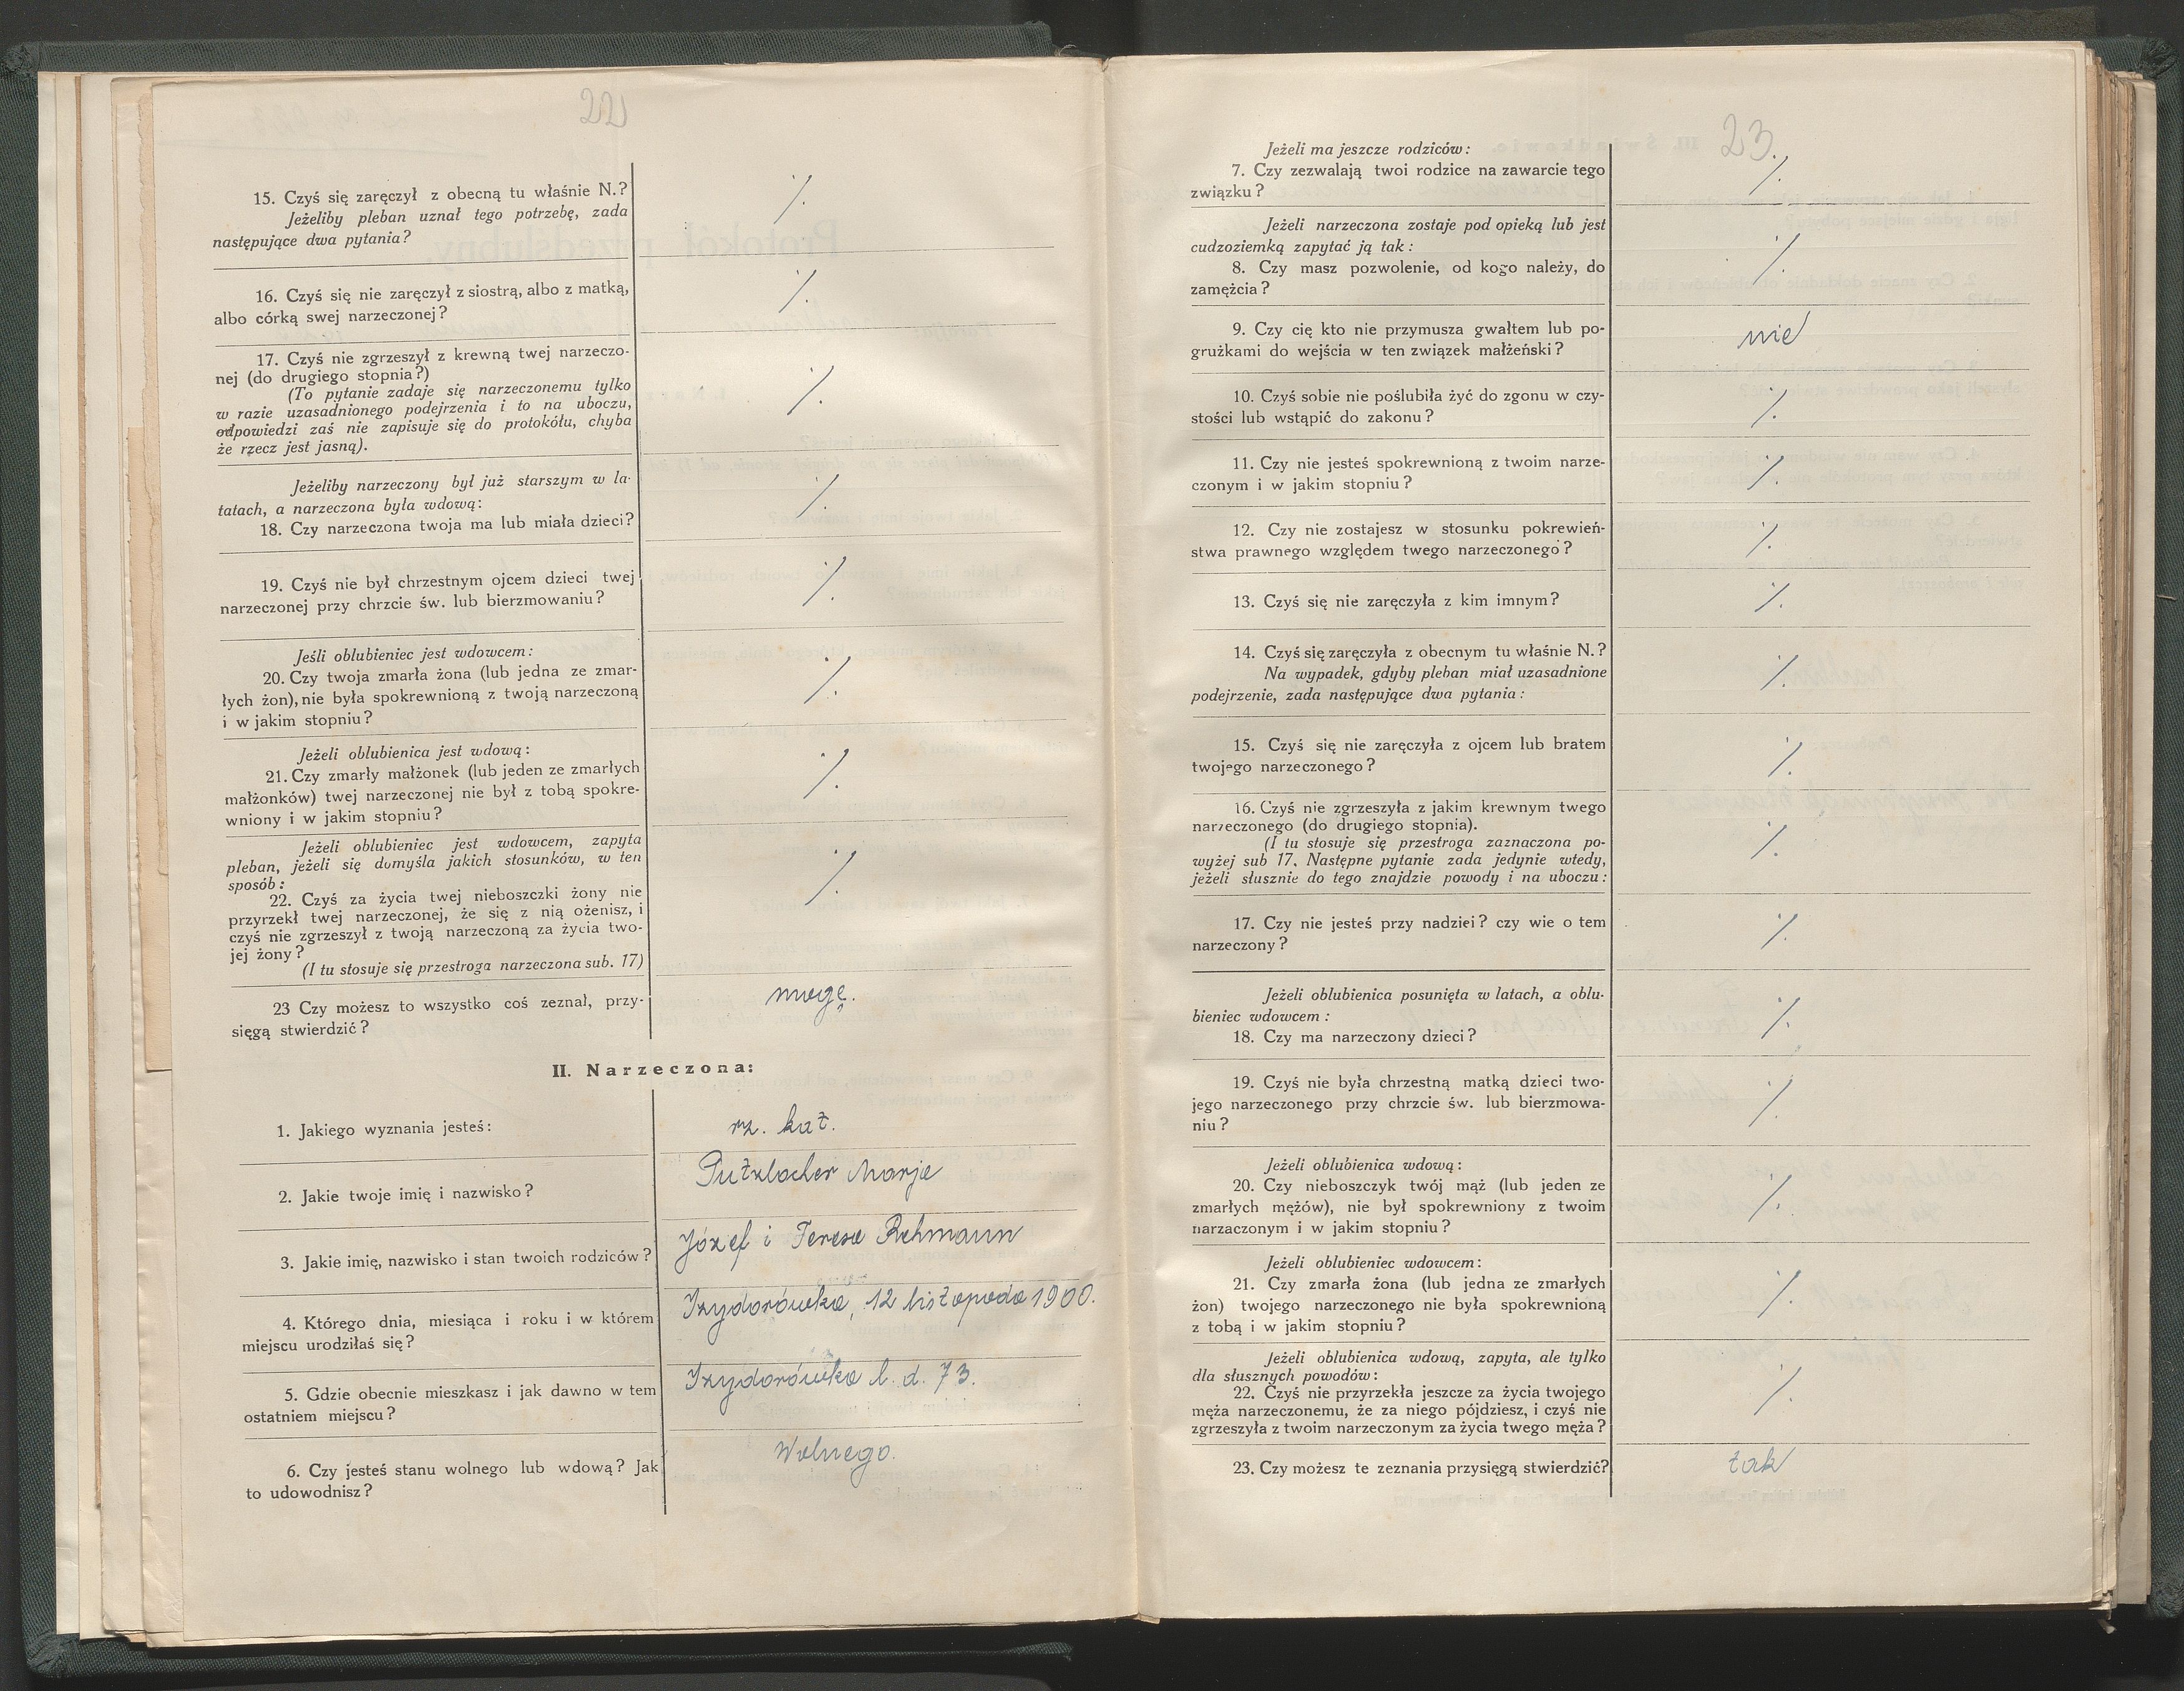 22
15. Czyś się zaręczył z obecną tu właśnie N.?
Jeżeliby pleban uznał tego potrzebę, zada
następujące dwa pytania?
./.
16. Czyś się nie zaręczył z siostrą, albo z matką,
albo córką swej narzeczonej?
./.
17. Czyś nie zgrzeszył z krewną twej narzeczo-
nej (do drugiego stopnia?)
(To pytanie zadaje się narzeczonemu tylko
w razie uzasadnionego podejrzenia i to na uboczu,
odpowiedzi zaś nie zapisuje się do protokółu, chyba
że rzecz jest jasną).
./.
Jeżeliby narzeczony był już starszym w la-
tatach, a narzeczona była wdową:
18. Czy narzeczona twoja ma lub miała dzieci?
./.
19. Czyś nie był chrzestnym ojcem dzieci twej
narzeczonej przy chrzcie św. lub bierzmowaniu?
./.
Jeśli oblubieniec jest wdowcem:
20. Czy twoja zmarła żona (lub jedna ze zmar-
łych żon), nie była spokrewnioną z twoją narzeczoną
i w jakim stopniu?
./.
Jeżeli oblubienica jest wdową:
21. Czy zmarły małżonek (lub jeden ze zmarłych
małżonków) twej narzeczonej nie był z tobą spokre-
wniony i w jakim stopniu?
./.
Jeżeli oblubieniec jest wdowcem, zapyta
pleban, jeżeli się domyśla jakich stosunków, w ten
sposób:
22. Czyś za życia twej nieboszczki żony nie
przyrzekł twej narzeczonej, że się z nią ożenisz, i
czyś nie zgrzeszył z twoją narzeczoną za życia two-
jej żony?
(I tu stosuje się przestroga narzeczona sub. 17)
./.
23 Czy możesz to wszystko coś zeznał, przy-
sięgą stwierdzić?
mogę.
II. Narzeczona:
1. Jakiego wyznania jesteś:
rz. kat.
2. Jakie twoje imię i nazwisko?
Putzlocher Marja
3. Jakie imię, nazwisko i stan twoich rodziców?
Józef i Teresa Rehmann
4. Którego dnia, miesiąca i roku i w którem
miejscu urodziłaś się?
Izydorówka, 12 listopada 1900.
5. Gdzie obecnie mieszkasz i jak dawno w tem
ostatniem miejscu?
Izydorówka l. d. 73.
6. Czy jesteś stanu wolnego lub wdową? Jak
to udowodnisz?
Wolnego.
23
Jeżeli ma jeszcze rodziców:
7. Czy zezwalają twoi rodzice na zawarcie tego
związku?
./.
Jeżeli narzeczona zostaje pod opieką lub jest
cudzoziemką zapytać ją tak:
8. Czy masz pozwolenie, od kogo należy, do
zamężcia?
./.
9. Czy cię kto nie przymusza gwałtem lub po-
gruźkami do wejścia w ten związek małżeński?
nie
10. Czyś sobie nie poślubiła żyć do zgonu w czy-
stości lub wstąpić do zakonu?
./.
11. Czy nie jesteś spokrewnioną z twoim narze-
czonym i w jakim stopniu?
./.
12. Czy nie zostajesz w stosunku pokrewień-
stwa prawnego względem twego narzeczonego?
./.
13. Czyś się nie zaręczyła z kim imnym?
./.
14. Czyś się zaręczyła z obecnym tu właśnie N.?
Na wypadek, gdyby pleban miał uzasadnione
podejrzenie, zada następujące dwa pytania:
./.
15. Czyś się nie zaręczyła z ojcem lub bratem
twojego narzeczonego?
./.
16. Czyś nie zgrzeszyła z jakim krewnym twego
narzeczonego (do drugiego stopnia).
(I tu stosuje się przestroga zaznaczona po-
wyżej sub 17. Następne pytanie zada jedynie wtedy,
jeżeli słusznie do tego znajdzie powody i na uboczu:
./.
17. Czy nie jesteś przy nadziei? czy wie o tem
narzeczony?
./.
Jeżeli oblubienica posunięta w latach, a oblu-
bieniec wdowcem:
18. Czy ma narzeczony dzieci?
./.
19. Czyś nie była chrzestną matką dzieci two-
jego narzeczonego przy chrzcie św. lub bierzmowa-
niu?
./.
Jeżeli oblubienica wdową:
20. Czy nieboszczyk twój mąż (lub jeden ze
zmarłych mężów), nie był spokrewniony z twoim
narzaczonym i w jakim stopniu?
./.
Jeżeli oblubieniec wdowcem:
21. Czy zmarła żona (lub jedna ze zmarłych
żon) twojego narzeczonego nie była spokrewnioną
z tobą i w jakim stopniu?
./.
Jeżeli oblubienica wdową, zapyta, ale tylko
dla słusznych powodów:
22. Czyś nie przyrzekła jeszcze za życia twojego
męża narzeczonemu, że za niego pójdziesz, i czyś nie
zgrzeszyła z twoim narzeczonym za życia twego męża?
./.
23. Czy możesz te zeznania przysięgą stwierdzić?
tak